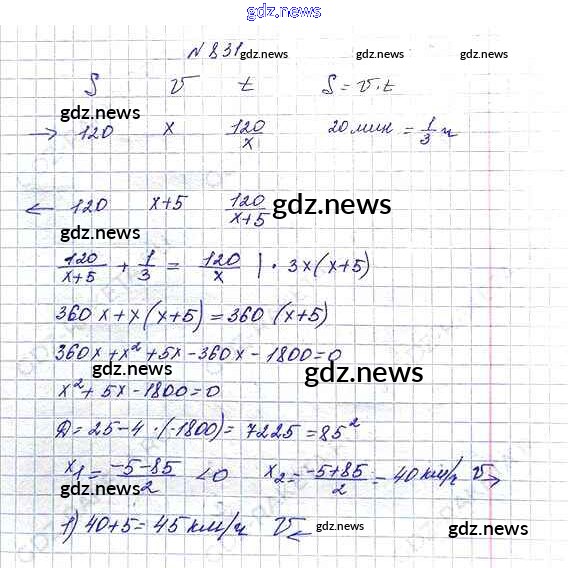 gdz.news
N 831 gdz.news gdz.news
S v t S = v · t
gdz.news
→ 120 x 120/x 20 мин = 1/3 ч
← 120 x+5 120/(x+5) gdz.news
gdz.news
120/(x+5) + 1/3 = 120/x | · 3x(x+5)
360x + x(x+5) = 360(x+5)
360x + x² + 5x - 360x - 1800 = 0
gdz.news
x² + 5x - 1800 = 0
Д = 25 - 4 · (-1800) = 7225 = 85²
x₁ = (-5-85)/2 < 0 x₂ = (-5+85)/2 = 40 км/ч v→
gdz.news gdz.news
1) 40 + 5 = 45 км/ч v← gdz.news gdz.news